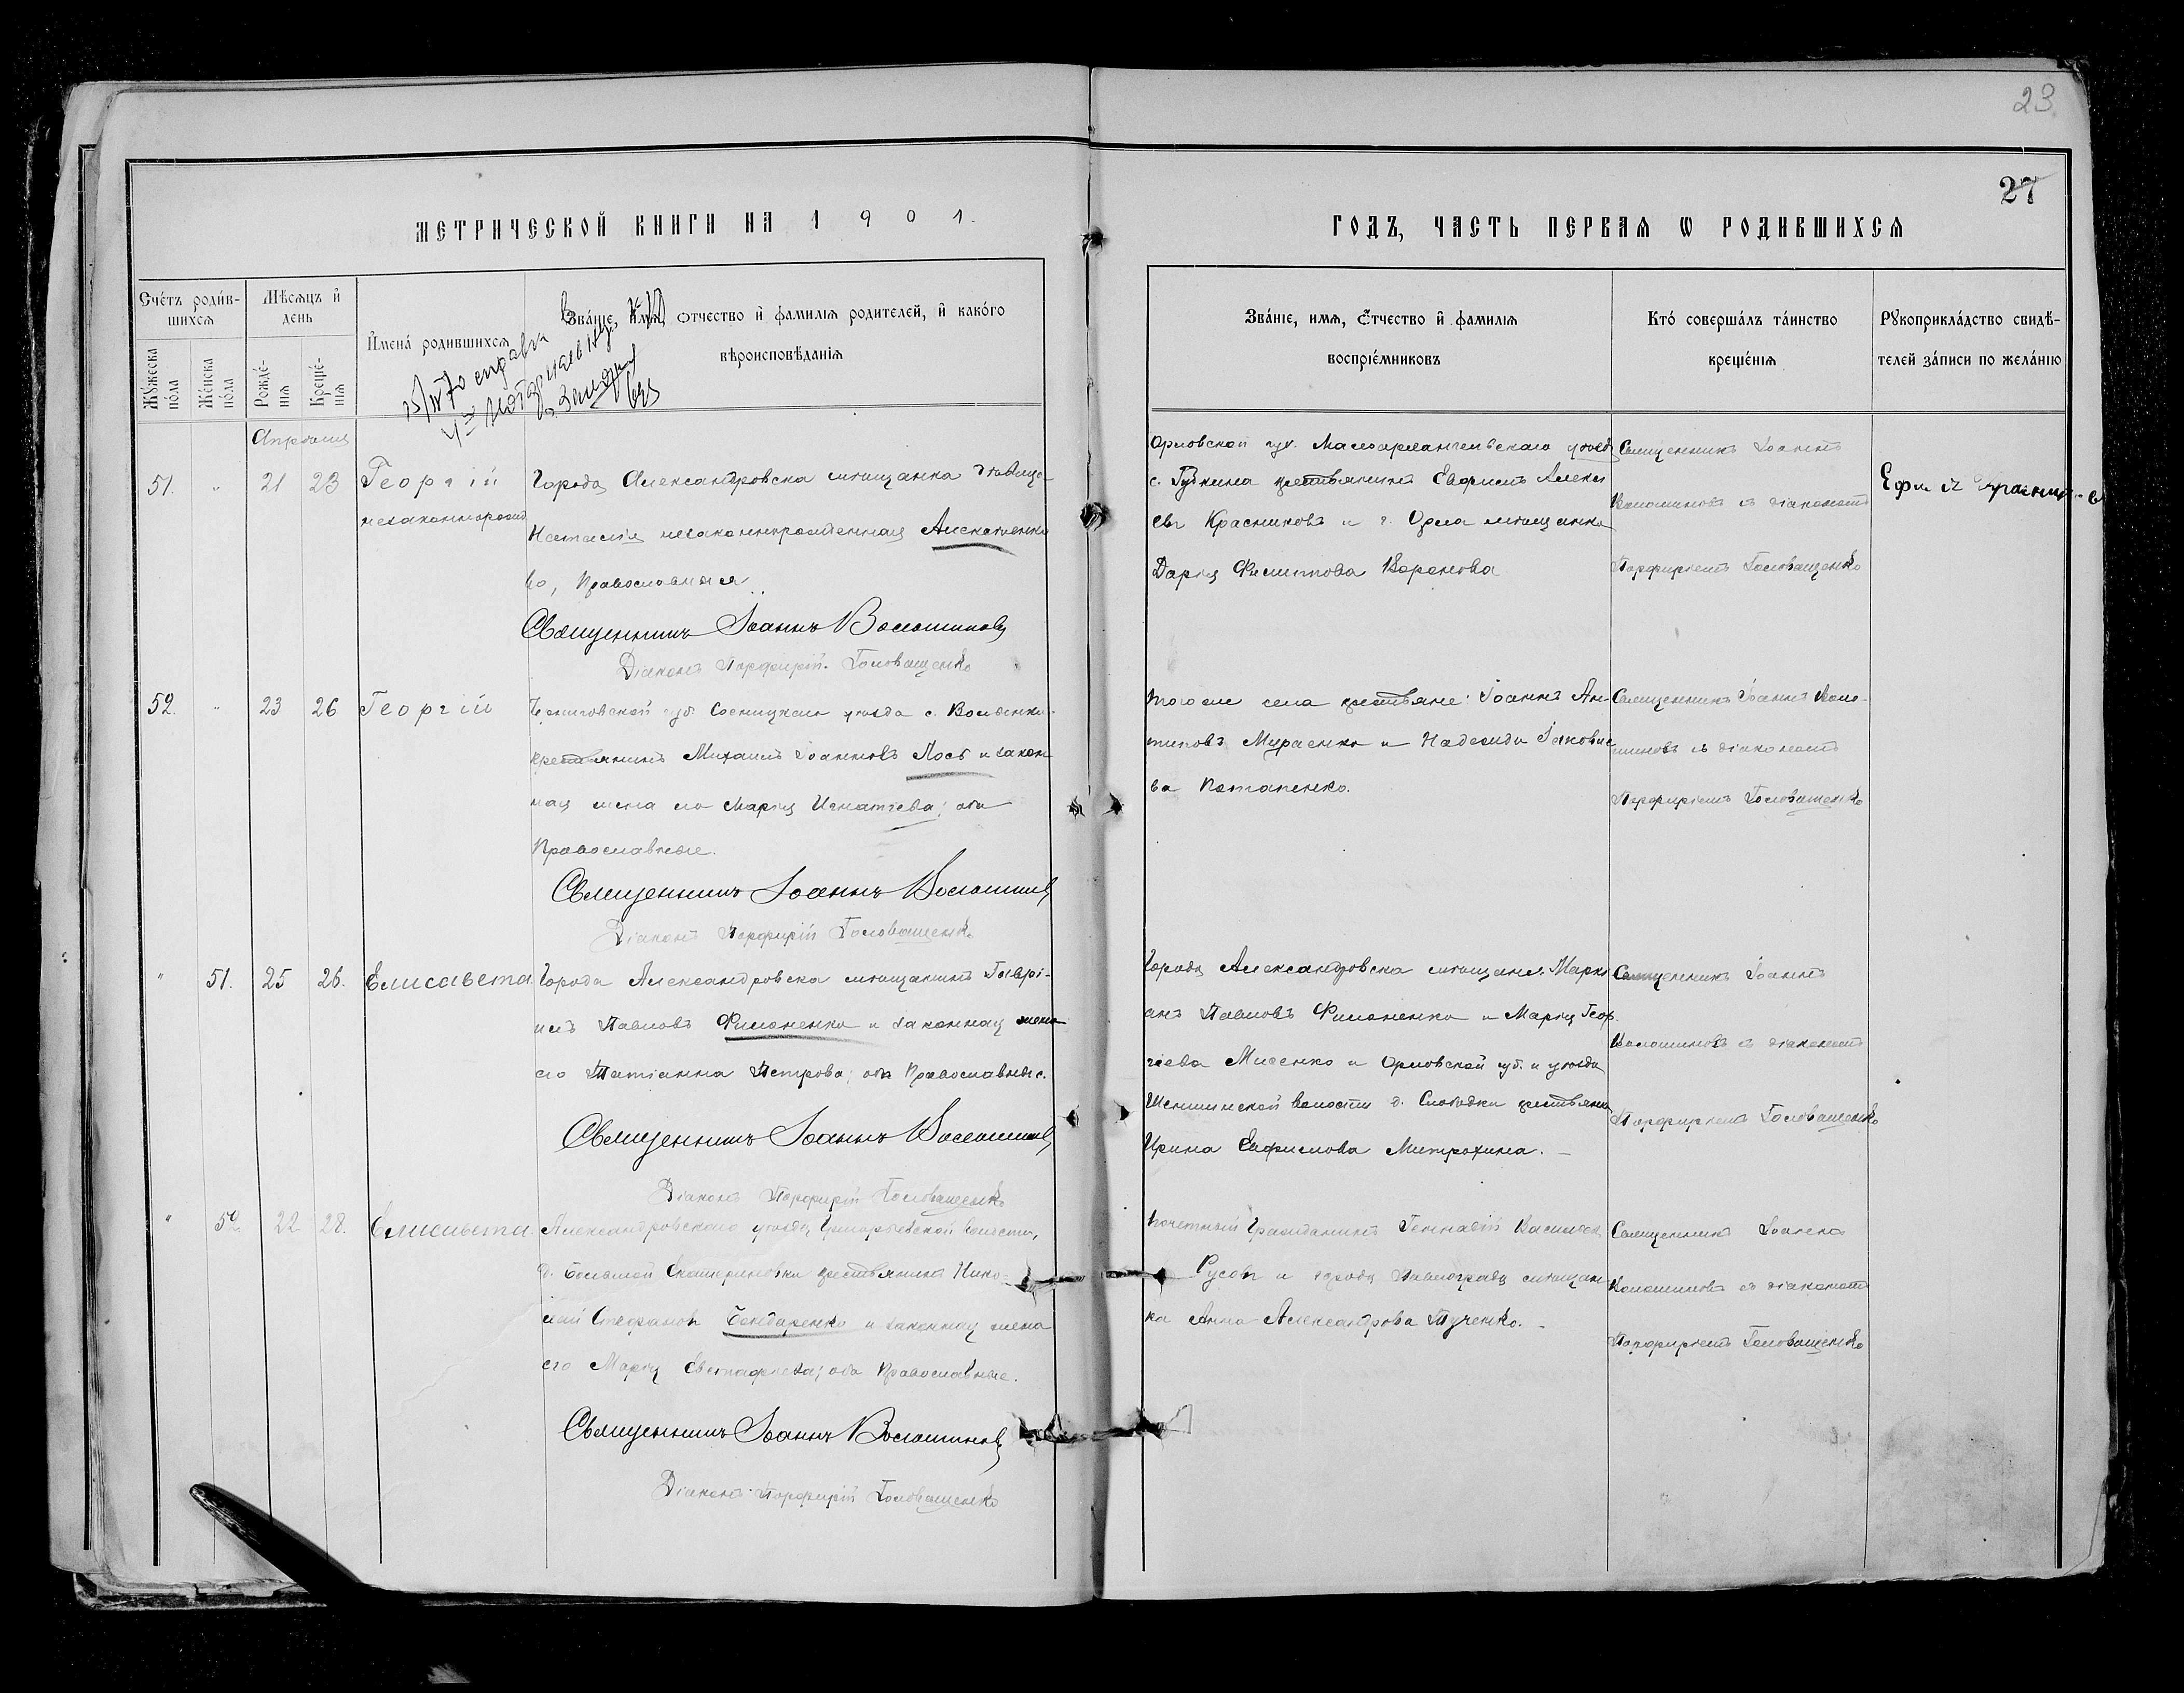 23
27
МЕТРИЧЕСКОЙ КНИГИ НА 1901.
ГОДЪ, ЧАСТЬ ПЕРВАЯ Ѡ РОДИВШИХСЯ
Счетъ родив-
шихся
Мѣсяцъ и
день
Мужеска
пола
Женска
пола
Рожде-
нія
Креще-
нія
Имена родившихся
Званіе, имя, отчество и фамилія родителей, и какого
вѣроисповѣданія
Званіе, имя, отчество и фамилія
воспріемниковъ
Кто совершалъ таинство
крещенія
Рукоприкладство свидѣ-
телей записи по желанію
Апрѣля
51. " 21 23 Георгій
Города Александровска мѣщанка дѣвица
Настасія незаконнорожденная Алексѣенко-
ва, Православная
Священникъ Іоаннъ Волошиновъ
Діаконъ Порфирій Головащенко
Орловской губ. Малоархангельскаго уѣзда
с. Губкина крестьянинъ Евфимъ Алексѣ
евъ Красниковъ и г. Орла мѣщанка
Дарія Филиппова Воронова
Священникъ Іоаннъ
Волошиновъ съ діакономъ
Порфиріемъ Головащенко
52. " 23 26 Георгій
Черниговской губ. Сосницкаго уѣзда с. Волынки
крестьянинъ Михаилъ Іоанновъ Лось и закон
ная жена его Марія Игнатіева; оба
Православные.
Священникъ Іоаннъ Волошиновъ
Діаконъ Порфирій Головащенко
того же села крестьяне: Іоаннъ Ан-
типовъ Мураенко и Надежда Іаковле
ва Потапенко.
Священникъ Іоаннъ Воло-
шиновъ съ діакономъ
Порфиріемъ Головащенко
" 51. 25 26. Елисавета
Города Александровска мѣщанинъ Гаврі-
илъ Павловъ Филоненко и законная жена
его Татіанна Петрова; оба Православные.
Священникъ Іоаннъ Волошиновъ
Діаконъ Порфирій Головащенко
Города Александровска мѣщане: Марки
анъ Павловъ Филоненко и Марія Геор-
гіева Мисенко и Орловской губ. и уѣзда
волости д. Слободки крестьянка
Ирина Евфимова Митрохина.
Священникъ Іоаннъ
Волошиновъ съ діакономъ
Порфиріемъ Головащенко
" 52 22 28. Елисавета
Александровскаго уѣзда, Григорьевской волости,
д. Большой Екатериновки крестьянинъ Нико-
лай Стефановъ Бондаренко и законная жена
его Марія Евстафіева; оба Православные.
Священникъ Іоаннъ Волошиновъ
Діаконъ Порфирій Головащенко
почетный Гражданинъ Геннадій Васильевъ
Русовъ и города Павлограда мѣщан
ка Анна Александрова Тученко.
Священникъ Іоаннъ
Волошиновъ съ діакономъ
Порфиріемъ Головащенко